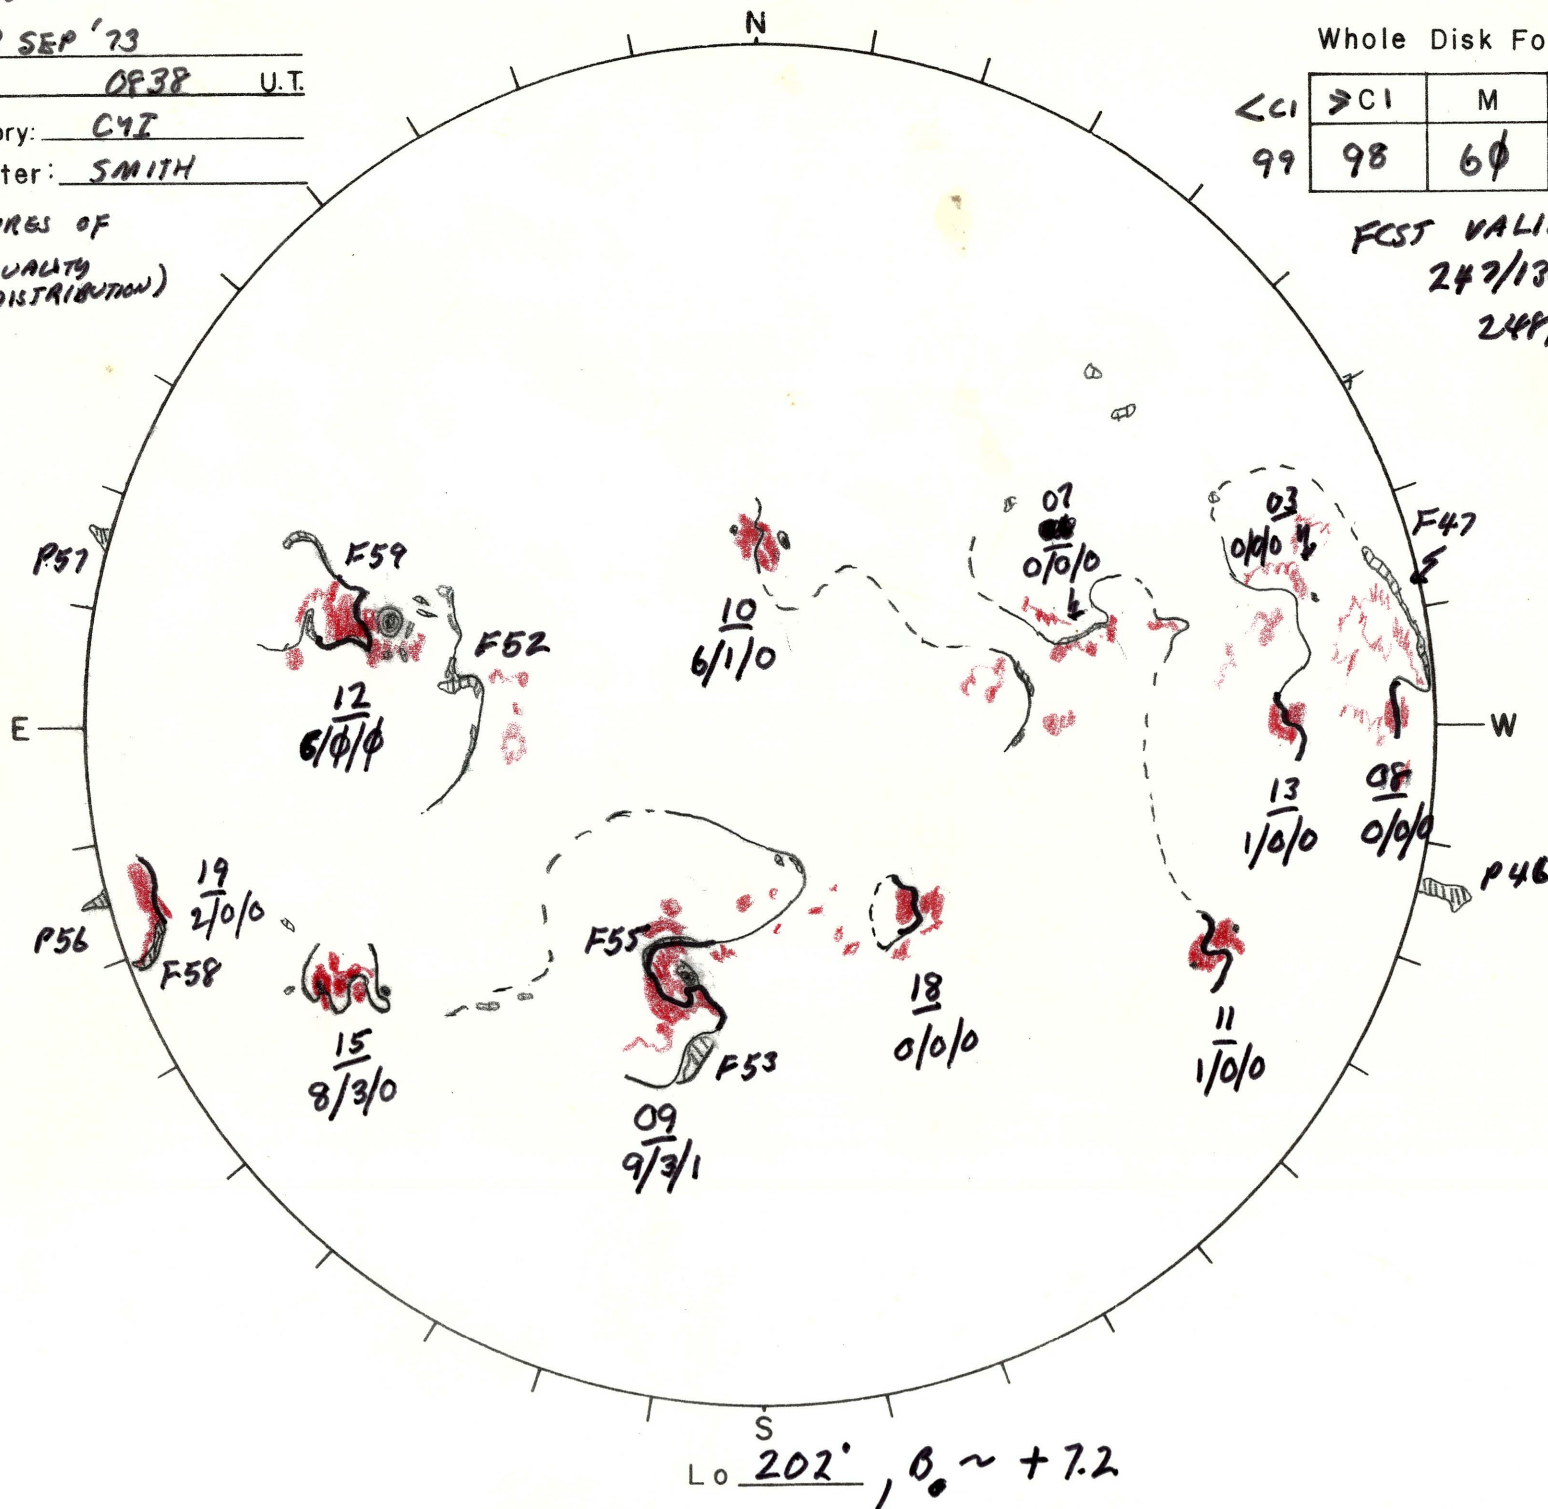 SEP '73
0838 U.T.
ory: CYI
ter: SMITH
RES OF
UALITY
DISTRIBUTION)
N
Whole Disk Fo
<C1 ≥C1 M
99 98 6∅
FCST VALI
247/13
248/
P57
F59
12
6/∅/∅
F52
10
6/1/0
07
0/0/0
03
0/0/0
F47
E
W
13
1/0/0
08
0/0/0
P46
19
2/0/0
P56
F58
15
8/3/0
F55
F53
09
9/3/1
18
0/0/0
11
1/0/0
S
Lo 202°, B₀ ~ +7.2